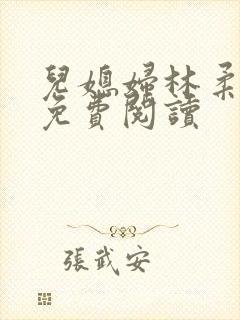 兒媳婦林柔
免費閱讀
張武安